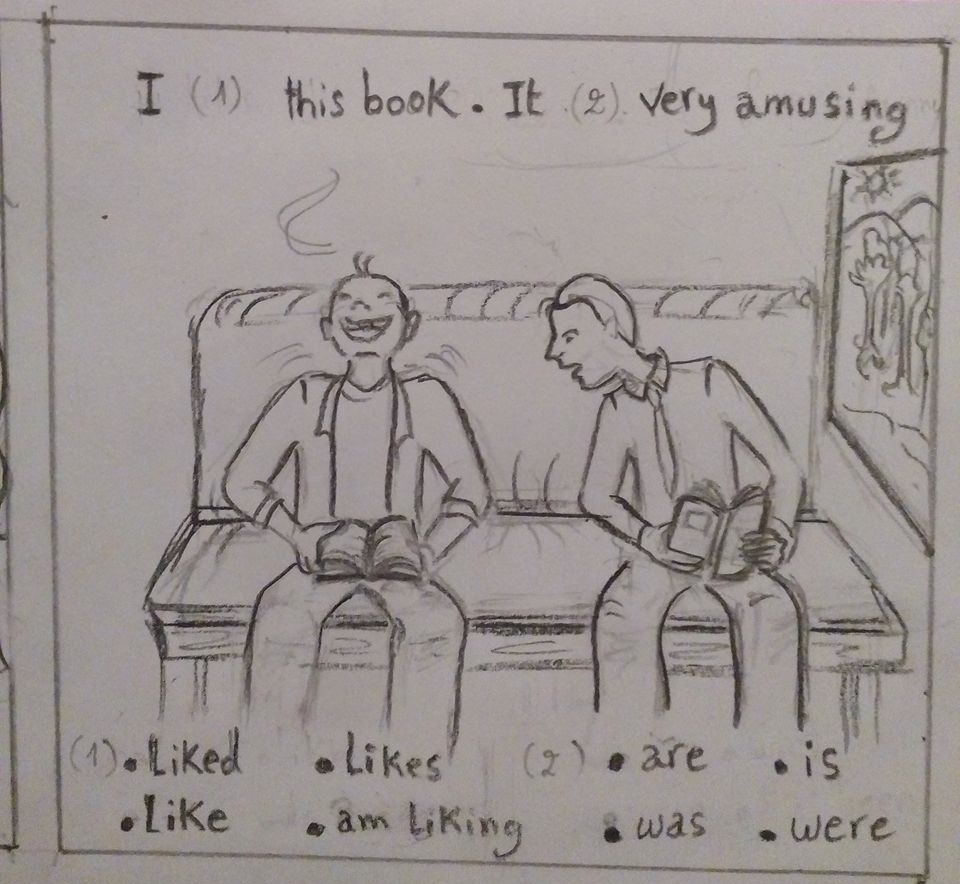 I (1) this book. It (2) very amusing
(1) • Liked • Likes (2) • are • is
• Like • am Liking • was • were